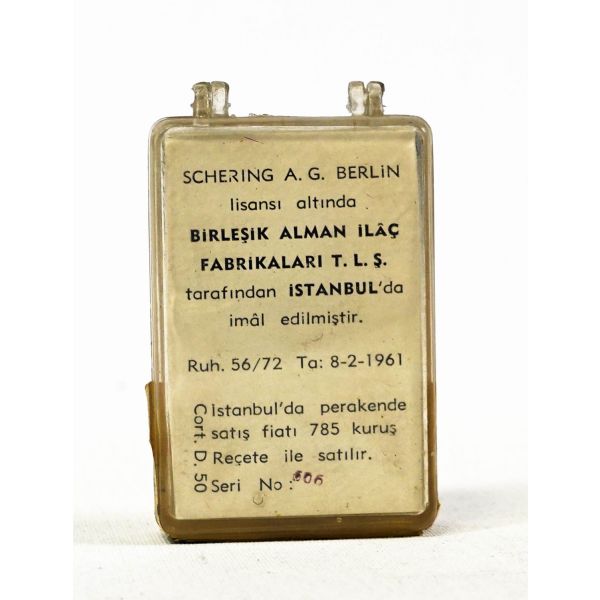 SCHERING A. G. BERLİN
lisansı altında
BİRLEŞİK ALMAN İLÂÇ
FABRİKALARI T. L. Ş.
tarafından İSTANBUL'da
imâl edilmiştir.
Ruh. 56/72 Ta: 8-2-1961
İstanbul'da perakende
satış fiatı 785 kuruş
Reçete ile satılır.
Seri No: 606
Cort. D. 50